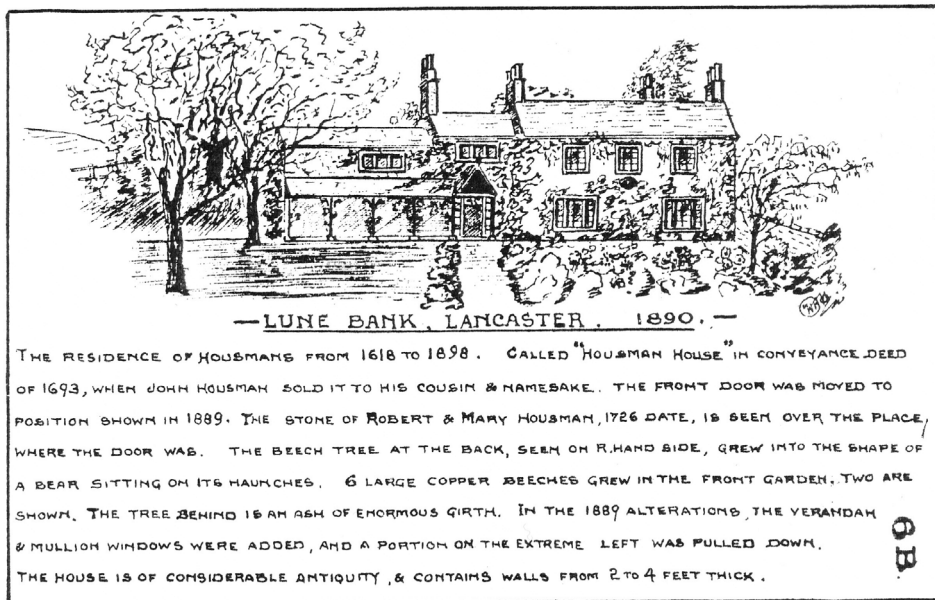 — LUNE BANK, LANCASTER. 1890. —
THE RESIDENCE OF HOUSMANS FROM 1618 TO 1898. CALLED "HOUSMAN HOUSE" IN CONVEYANCE DEED
OF 1693, WHEN JOHN HOUSMAN SOLD IT TO HIS COUSIN & NAMESAKE. THE FRONT DOOR WAS MOVED TO
POSITION SHOWN IN 1889. THE STONE OF ROBERT & MARY HOUSMAN, 1726 DATE, IS SEEN OVER THE PLACE,
WHERE THE DOOR WAS. THE BEECH TREE AT THE BACK, SEEN ON R. HAND SIDE, GREW INTO THE SHAPE OF
A BEAR SITTING ON ITS HAUNCHES. 6 LARGE COPPER BEECHES GREW IN THE FRONT GARDEN. TWO ARE
SHOWN. THE TREE BEHIND IS AN ASH OF ENORMOUS GIRTH. IN THE 1889 ALTERATIONS, THE VERANDAH
& MULLION WINDOWS WERE ADDED, AND A PORTION ON THE EXTREME LEFT WAS PULLED DOWN.
THE HOUSE IS OF CONSIDERABLE ANTIQUITY, & CONTAINS WALLS FROM 2 TO 4 FEET THICK.
6B.